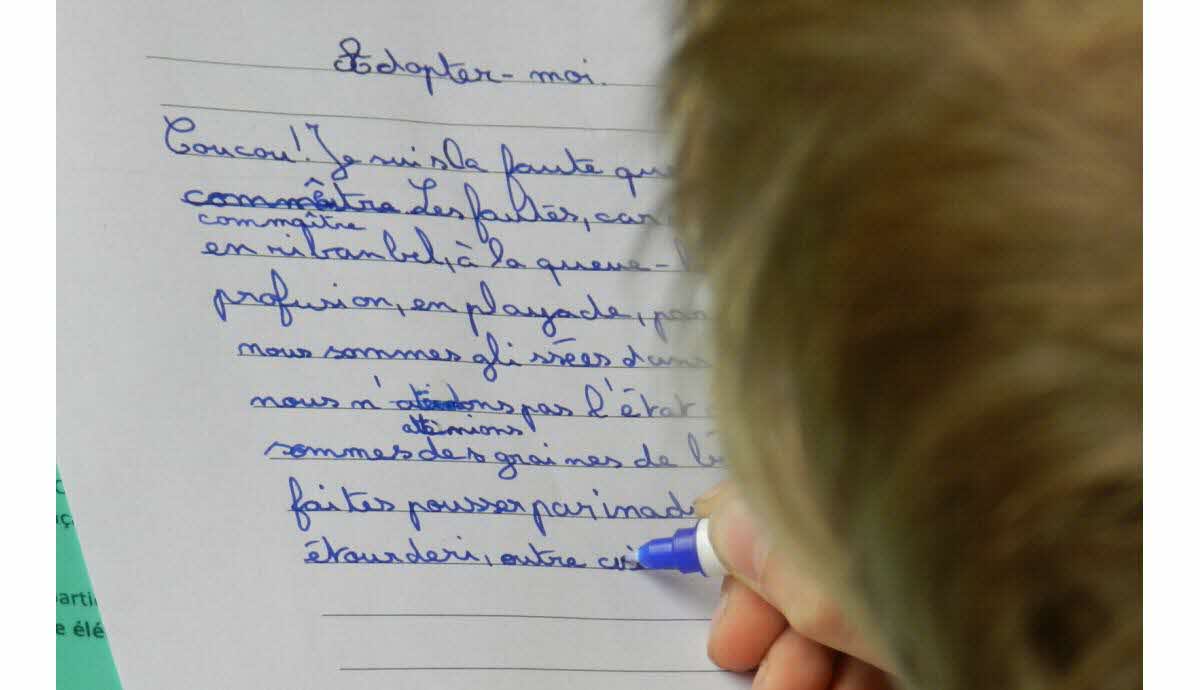 Adopter-moi.
Coucou! Je suis la faute que
commêtre Les fautes, car
commaître
en ribanbel, à la queue-l
profusion, en playade, par
nous sommes glissées dans
nous n' pas l'état
attêmions
sommes des graines de
faites pousser par inad
étourderi, outre cui
artic
e élé